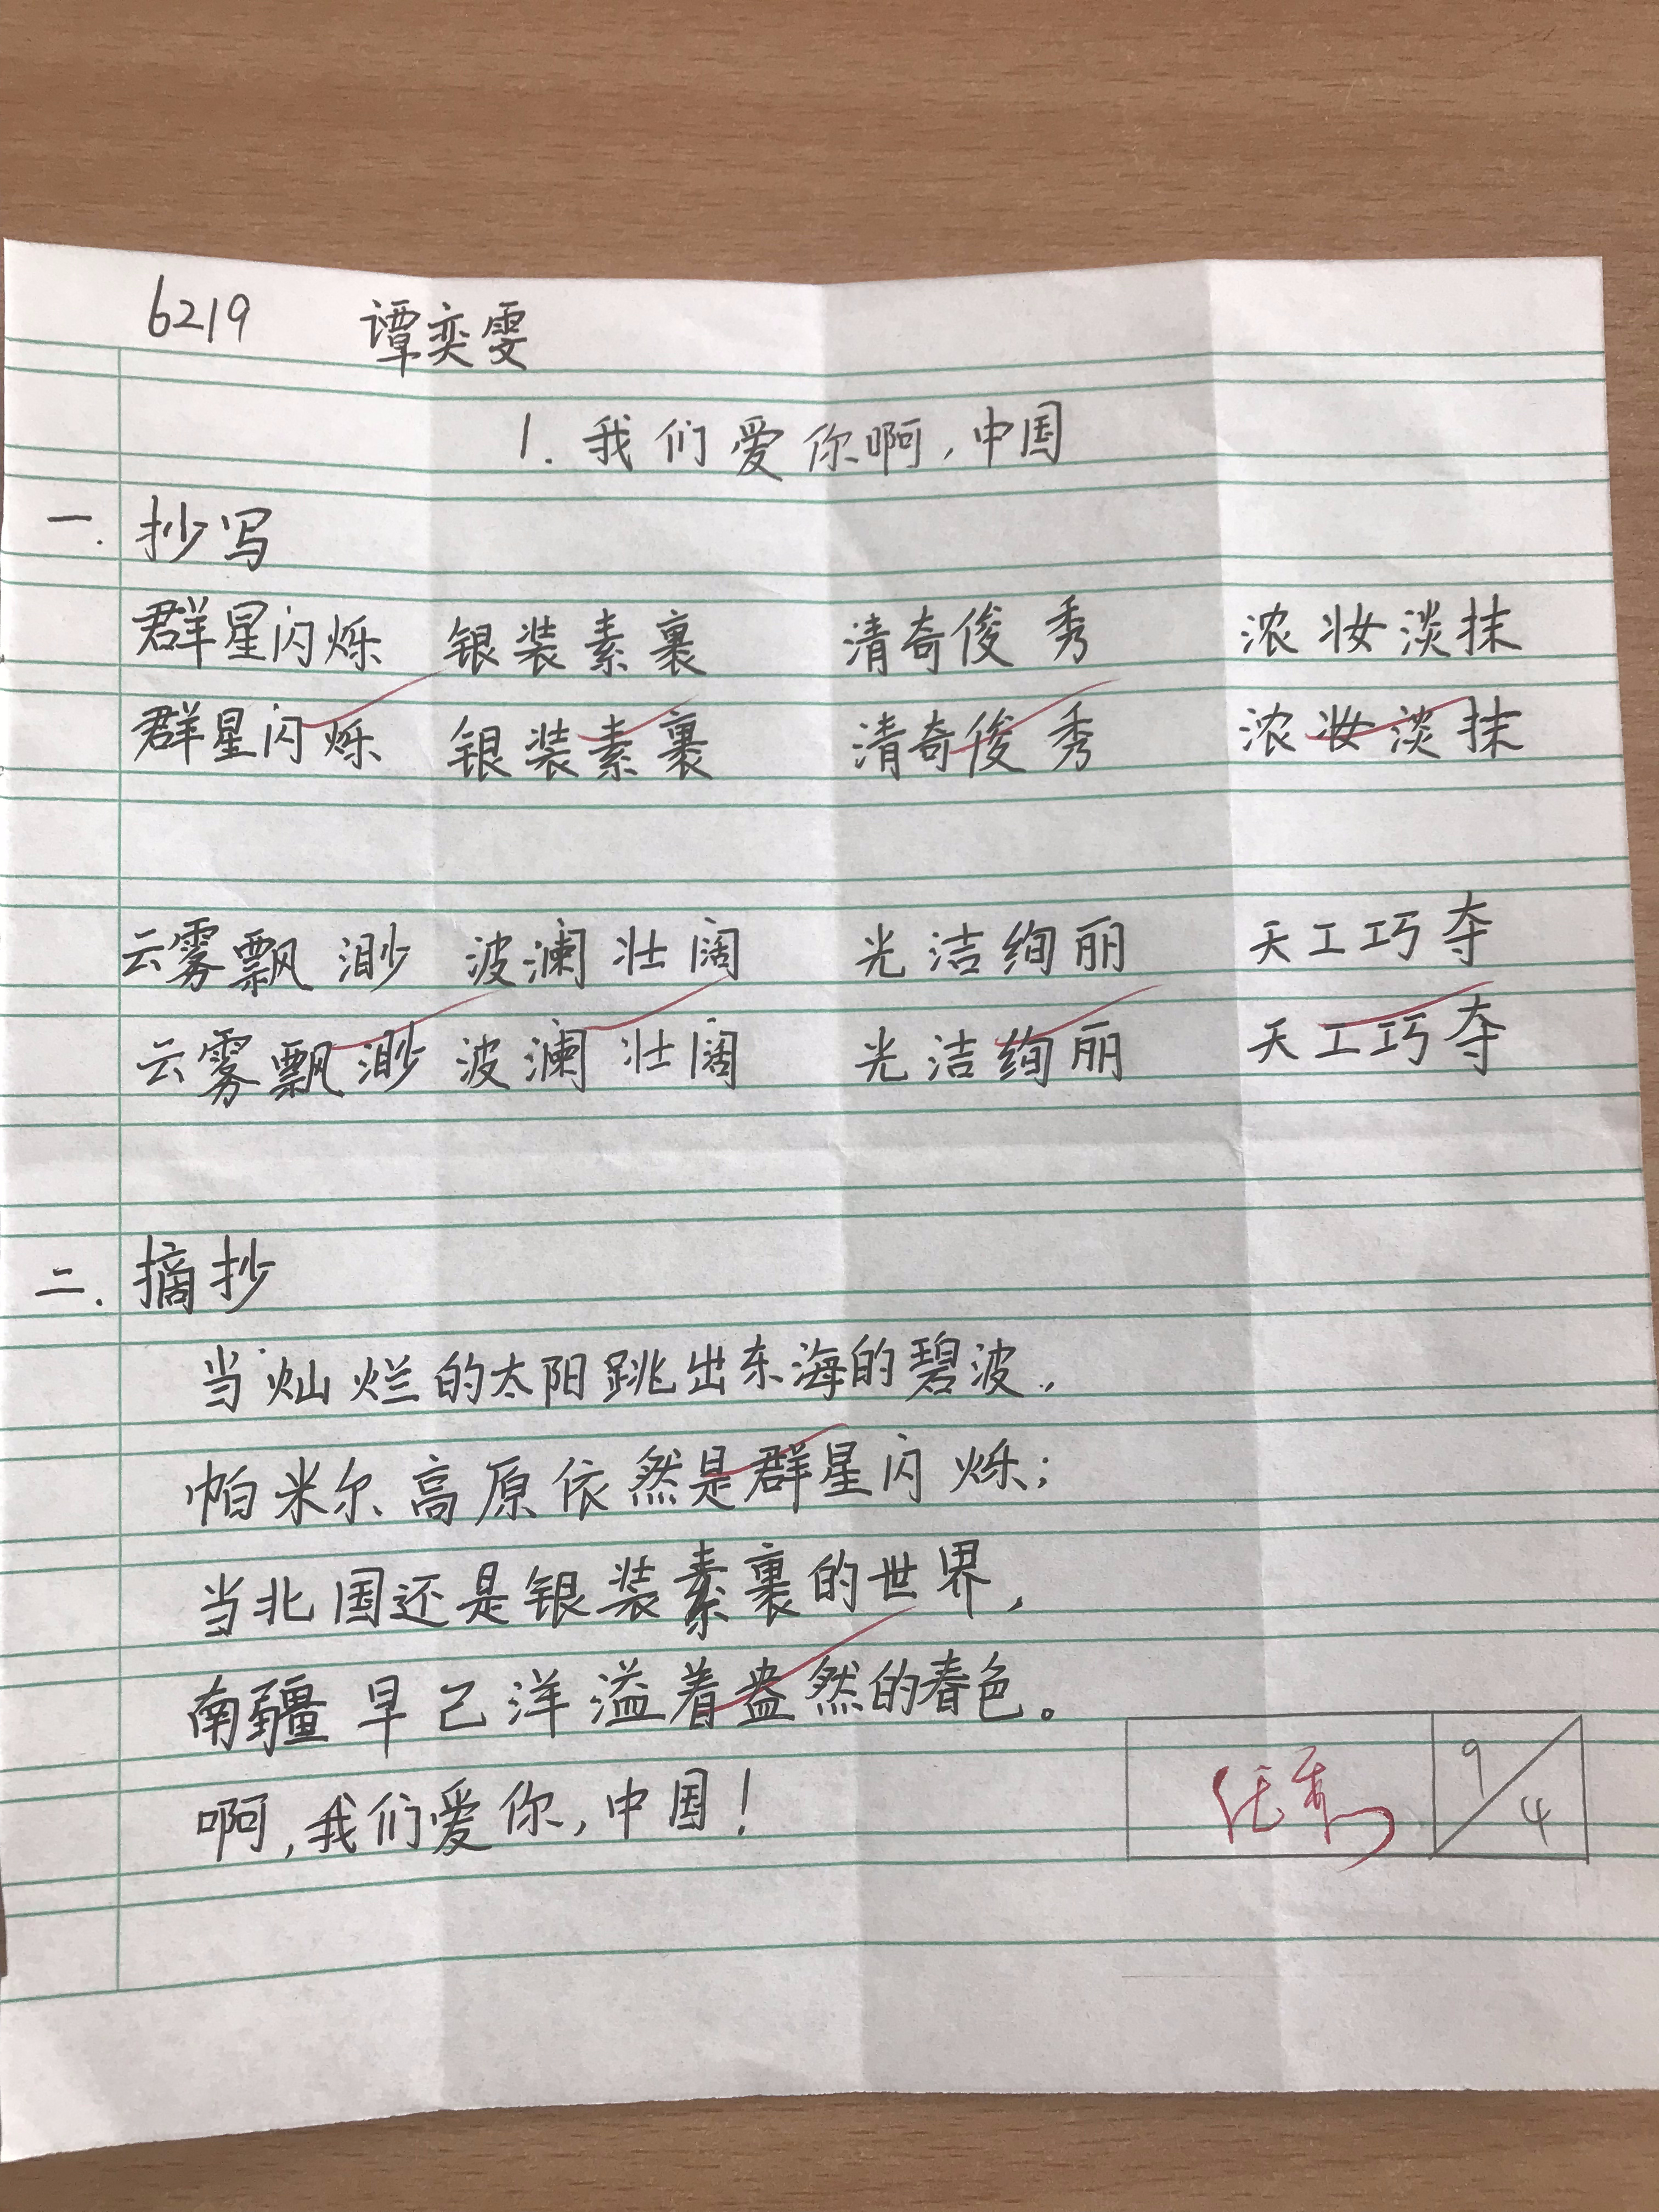 6219 谭奕雯
1. 我们爱你啊,中国
一. 抄写
群星闪烁 银装素裹 清奇俊秀 浓妆淡抹
群星闪烁 银装素裹 清奇俊秀 浓妆淡抹
云雾飘渺 波澜壮阔 光洁绚丽 天工巧夺
云雾飘渺 波澜壮阔 光洁绚丽 天工巧夺
二. 摘抄
当灿烂的太阳跳出东海的碧波,
帕米尔高原依然是群星闪烁;
当北国还是银装素裹的世界,
南疆早已洋溢着盎然的春色。
啊,我们爱你,中国!
优秀 9/4